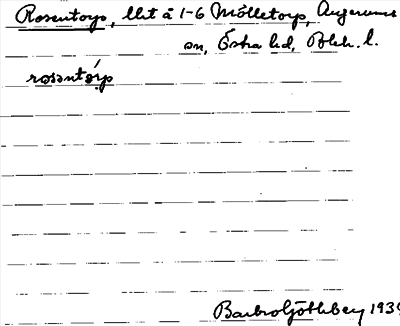 Rosentorp, lht å 1-6 Mölletorp, Augerums
sn, Östra hd, Blek. l.
rosəntórp
Barbro Götlberg 193